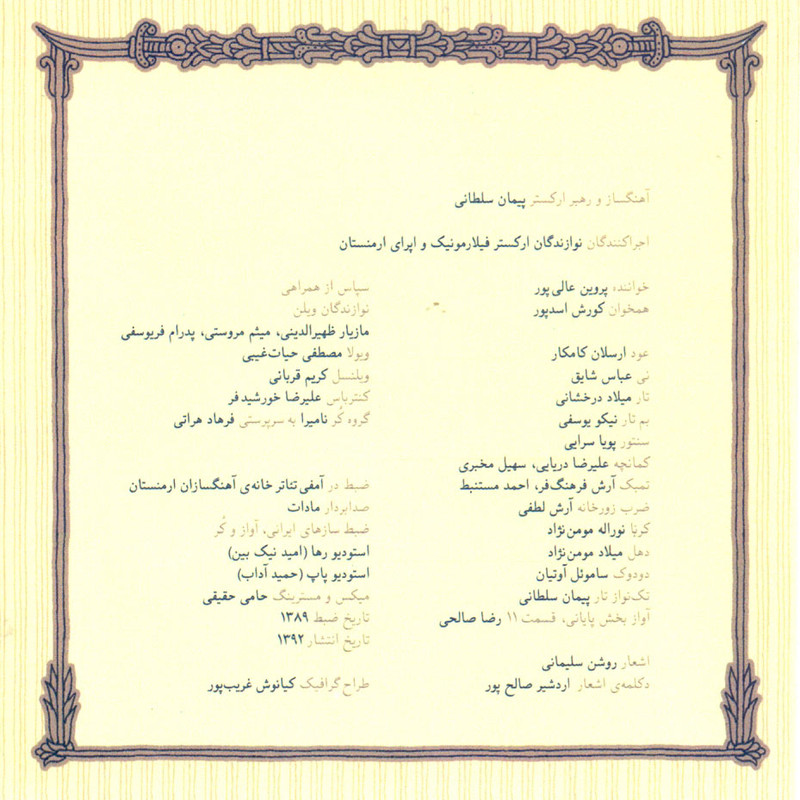 آهنگساز و رهبر ارکستر پیمان سلطانی
اجراکنندگان نوازندگان ارکستر فیلارمونیک و اپرای ارمنستان
خواننده پروین عالی‌پور
همخوان کورش اسدپور
عود ارسلان کامکار
نی عباس شایق
تار میلاد درخشانی
بم تار نیکو یوسفی
سنتور پویا سرایی
کمانچه علیرضا دریایی، سهیل مخبری
تمبک آرش فرهنگ‌فر، احمد مستنبط
ضرب زورخانه آرش لطفی
کرنا نوراله مومن‌نژاد
دهل میلاد مومن‌نژاد
دودوک ساموئل آوتیان
تک‌نواز تار پیمان سلطانی
آواز بخش پایانی، قسمت ۱۱ رضا صالحی
اشعار روشن سلیمانی
دکلمه‌ی اشعار اردشیر صالح پور
سپاس از همراهی
نوازندگان ویلن
مازیار ظهیرالدینی، میثم مروستی، پدرام فریوسفی
ویولا مصطفی حیات‌غیبی
ویلنسل کریم قربانی
کنترباس علیرضا خورشیدفر
گروه کُر نامیرا به سرپرستی فرهاد هراتی
ضبط در آمفی‌تئاتر خانه‌ی آهنگسازان ارمنستان
صدابردار مادات
ضبط سازهای ایرانی، آواز و کُر
استودیو رها (امید نیک بین)
استودیو پاپ (حمید آداب)
میکس و مسترینگ حامی حقیقی
تاریخ ضبط ۱۳۸۹
تاریخ انتشار ۱۳۹۲
طراح گرافیک کیانوش غریب‌پور